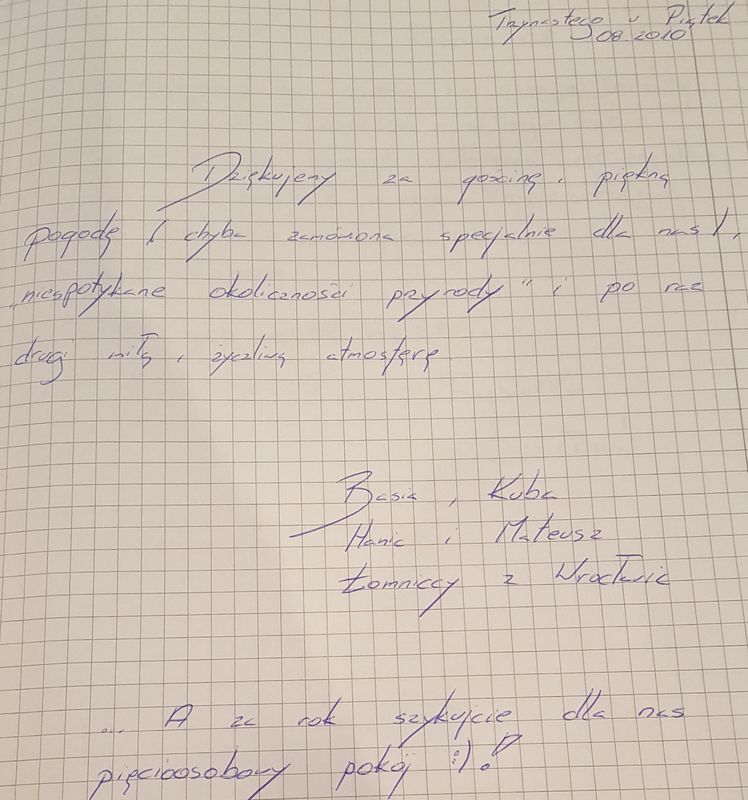 Trzynastego w Piątek
08.2010
Dziękujemy za gościnę, piękną
pogodę ( chyba zamówiona specjalnie dla nas ),
„niespotykane okoliczności przyrody" i po raz
drugi miłą, życzliwą atmosferę
Basia, Kuba
Hania i Mateusz
Łomniccy z Wrocławia
... A za rok szykujcie dla nas
pięcioosobowy pokój :) !